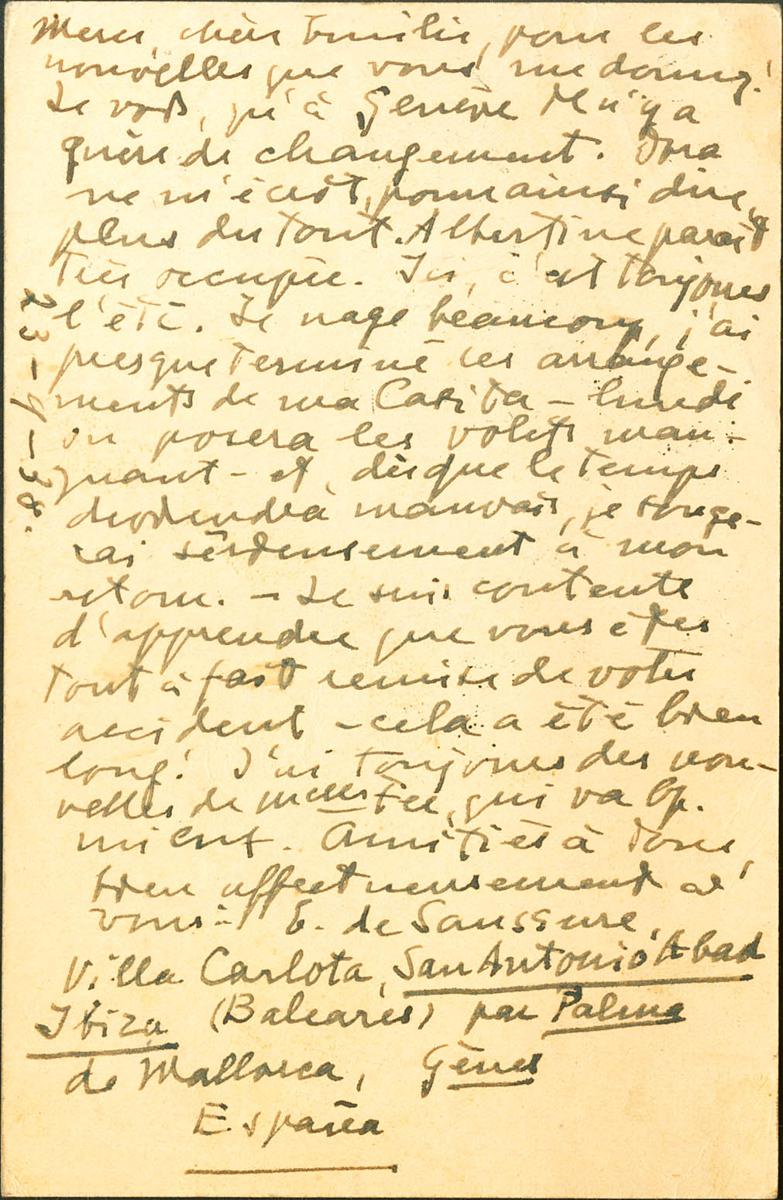 Merci, chère Emilie, pour les
nouvelles que vous me donnez!
Je vois, qu'à Genève il n'y a
guère de changement. Dora
ne m'écrit, pour ainsi dire,
plus du tout. Albertine paraît
très occupée. Ici, c'est toujours
l'été. Je nage beaucoup, j'ai
presque terminé les arrange-
ments de ma Casita – lundi
on posera les volets man-
quant – et, dès que le temps
deviendra mauvais, je songe-
rai sérieusement à mon
retour. – Je suis contente
d'apprendre que vous êtes
tout à fait remise de votre
accident – cela a été bien
long! J'ai toujours des nou-
velles de qui va bp.
mieux. Amitiés à tous,
bien affectueusement à
vous! E. de Saussure,
Villa Carlota, San Antonio Abad
Ibiza (Baleares) par Palma
de Mallorca, Gènes
España
23-9-38.